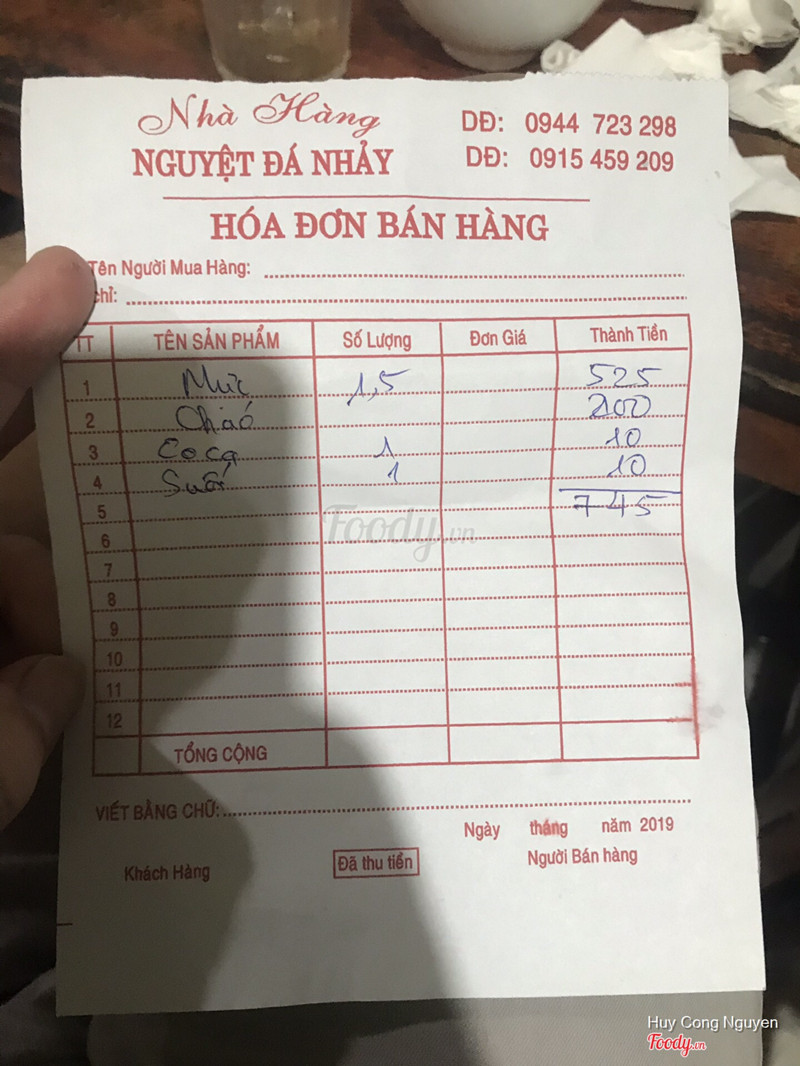 Nhà Hàng
NGUYỆT ĐÁ NHẢY
DĐ: 0944 723 298
DĐ: 0915 459 209
HÓA ĐƠN BÁN HÀNG
Tên Người Mua Hàng:
chỉ:
TT TÊN SẢN PHẨM Số Lượng Đơn Giá Thành Tiền
1 Mực 1,5 525
2 Cháo 200
3 Coca 1 10
4 Suối 1 10
5 745
6
7
8
9
10
11
12
TỔNG CỘNG
VIẾT BẰNG CHỮ:
Ngày tháng năm 2019
Khách Hàng Đã thu tiền Người Bán hàng
Foody.vn
Huy Cong Nguyen
Foody.vn